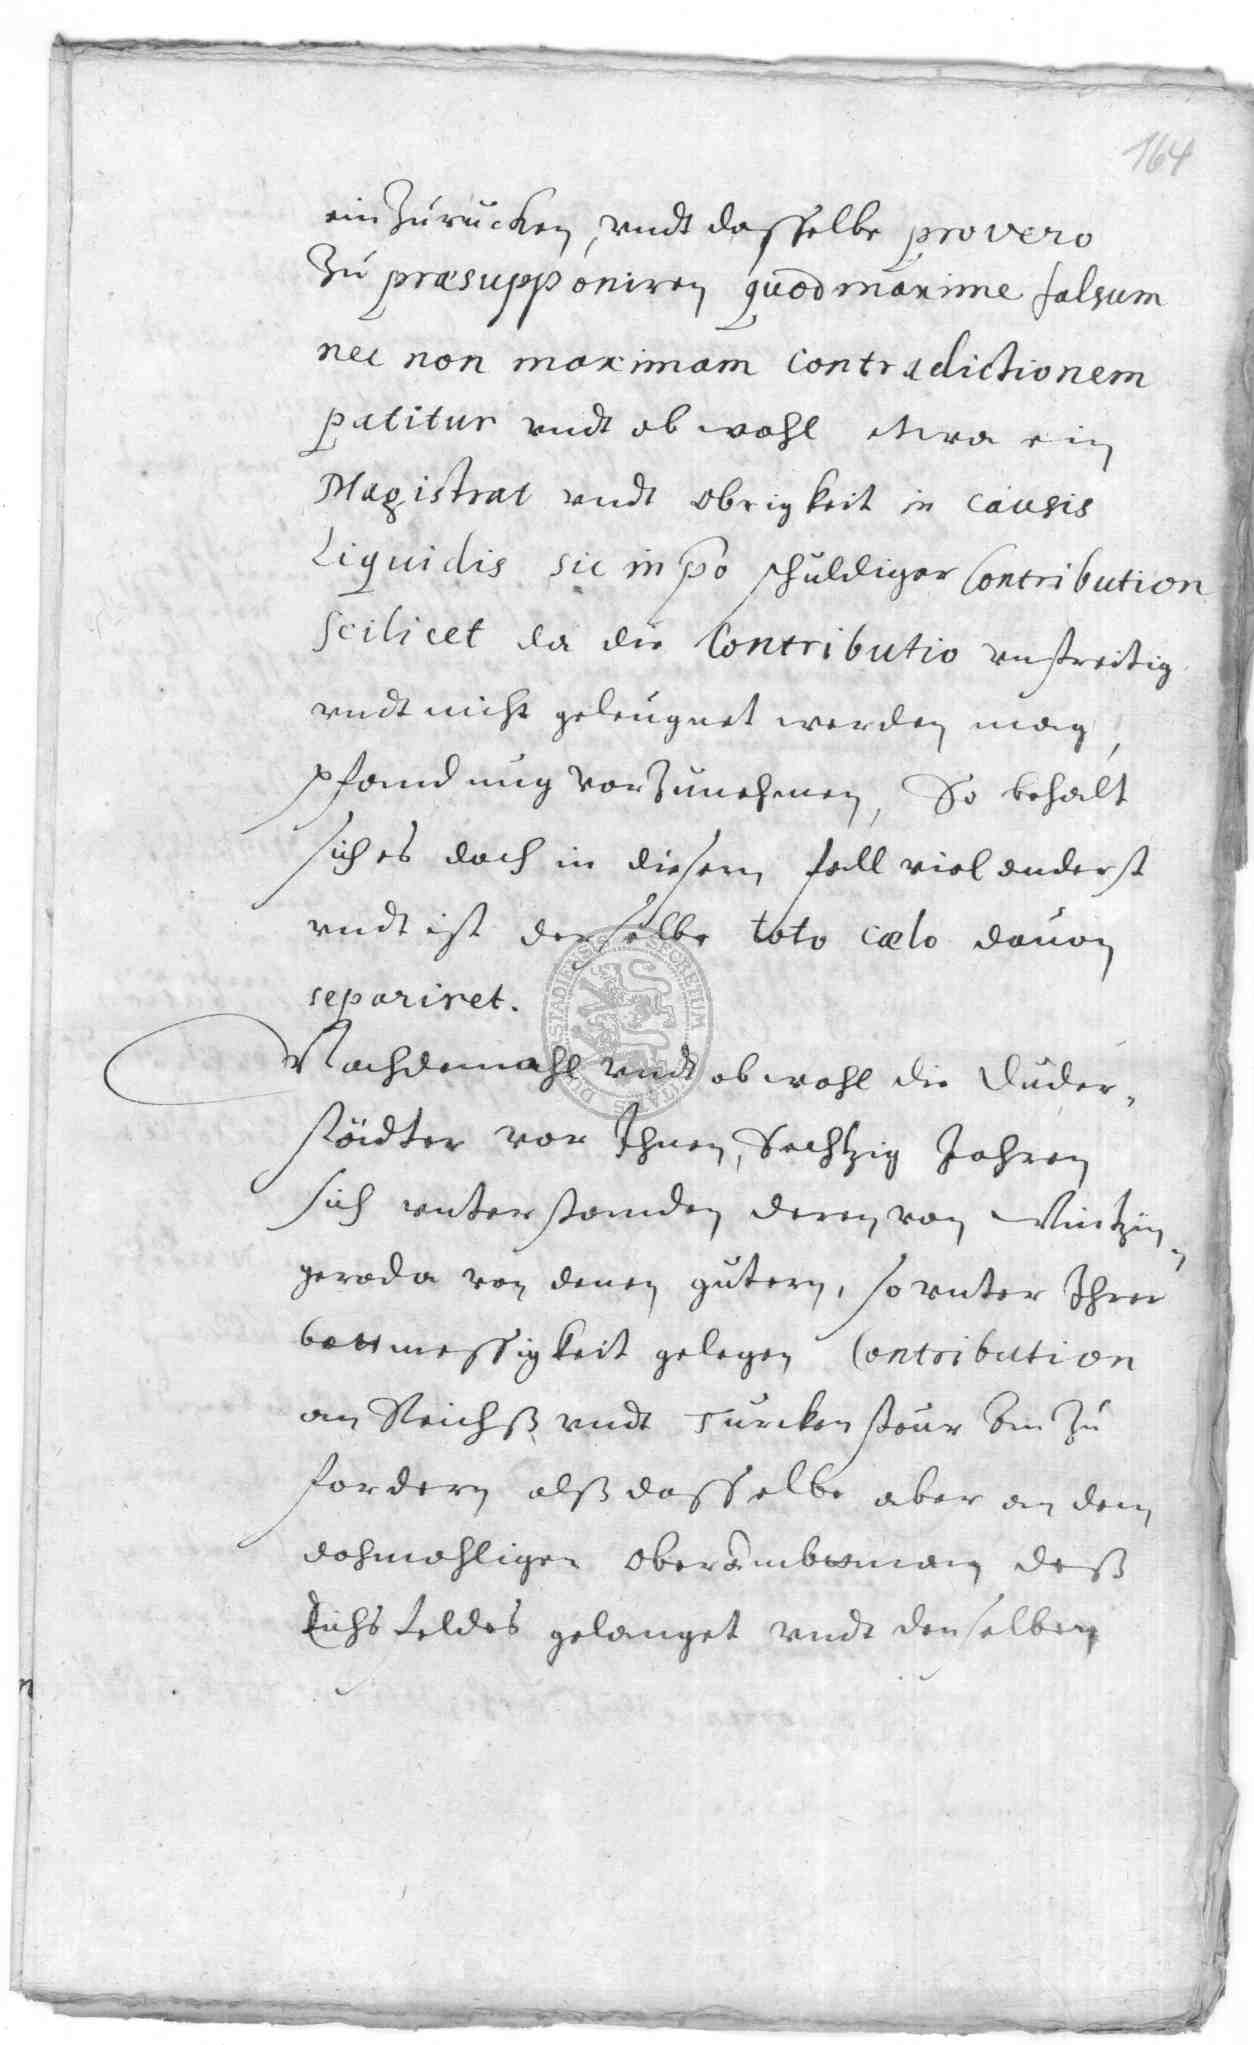 164
ein Zurucken, undt dasselbe pro vero
Zu præsupponiren quod maxime falsum
nec non maximam contradictionem
patitur undt ob wohl etwa ein
Magistrat undt obrigkeit in causis
Liquidis sic in po schuldiger Contribution
scilicet da die Contributio unstreitig
undt nicht geleugnet werden mag,
pfandung vorZunehmen, So behalt
sich es doch in diesem fall viel anderst
undt ist derselbe toto cælo davon
separiret.
Nachdemahl undt ob wohl die Duder-
städter vor Ihnen, Sechtzig Jahren
sich unterstanden denen von Wintzin-
geroda von denen gutern, so unter Ihrer
bottmessigkeit gelegen Contribution
an Reichß undt Turcken steur Zu
fordern alß dasselbe aber an dem
dahmahligen Oberambtman deß
Eichsfeldes gelanget undt denselben